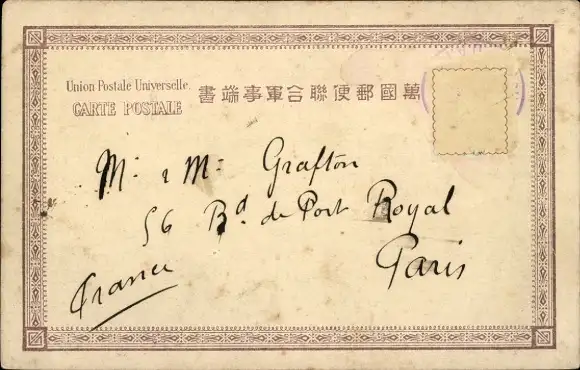 Union Postale Universelle.
CARTE POSTALE
萬國郵便聯合軍事端書
Mr & Mr Grafton
56 Bd. de Port Royal
Paris
France